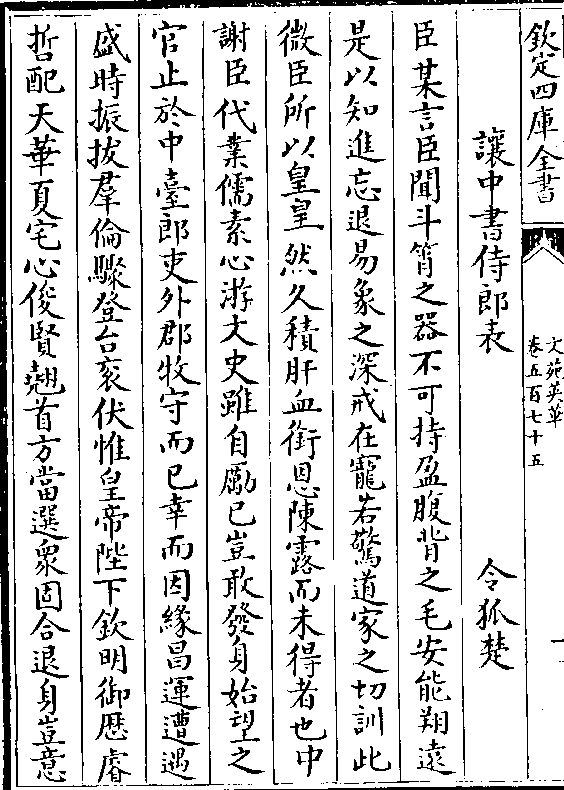 欽定四庫全書
文苑英華
卷五百七十五
一
讓中書侍郎表 令狐楚
臣某言臣聞斗筲之器不可持盈腹背之毛安能翔遠
是以知進忘退易象之深戒在寵若驚道家之切訓此
微臣所以皇皇然久積肝血銜恩陳露而未得者也中
謝臣代業儒素心游文史雖自勵已豈敢發身始望之
官止於中臺郎吏外郡牧守而已幸而因緣昌運遭遇
盛時振拔羣倫驟登台衮伏惟皇帝陛下欽明御厯睿
哲配天華夏宅心俊賢翹首方當選衆固合退身豈意